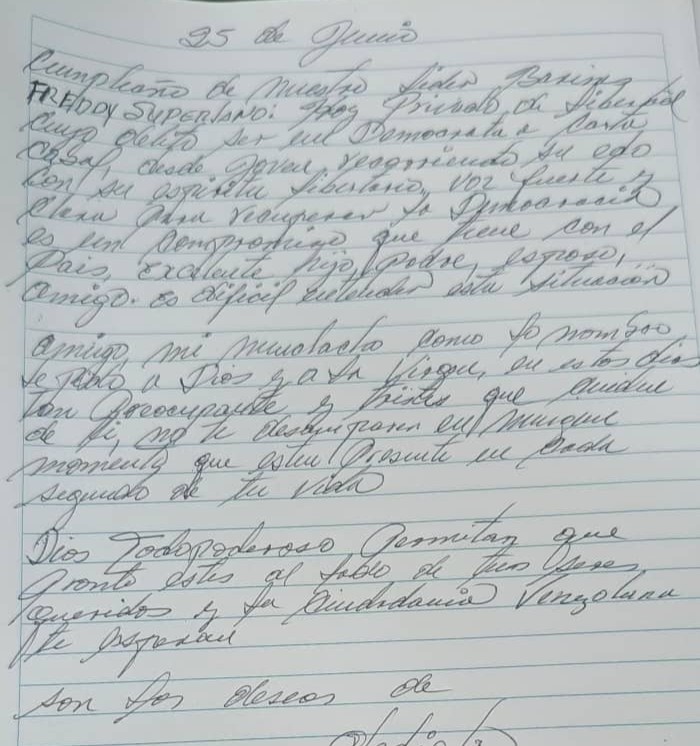 25 de Junio
Cumpleaño de nuestro Líder Barines
FREDDY SUPERLANO: hoy Privado de Libertad
cuyo delito ser un Democrata a Carta
Cabal, desde joven recorriendo su edo
Con su espíritu libertario, voz fuerte y
Clara para recuperar la Democracia
es un Compromiso que tiene con el
País, Excelente hijo, padre, esposo,
amigo. es dificil entender esta situación
amigo, mi muchacho como lo nombro
le pido a Dios y a la Virgen, en estos días
tan Preocupante y tristes que cuiden
de ti, no te desamparen en ningun
momento que esten Presente en Cada
segundo de tu vida
Dios Todopoderoso Permitan que
pronto estes al lado de tus seres
queridos y la Ciudadania Venezolana
te esperan
son los deseos de